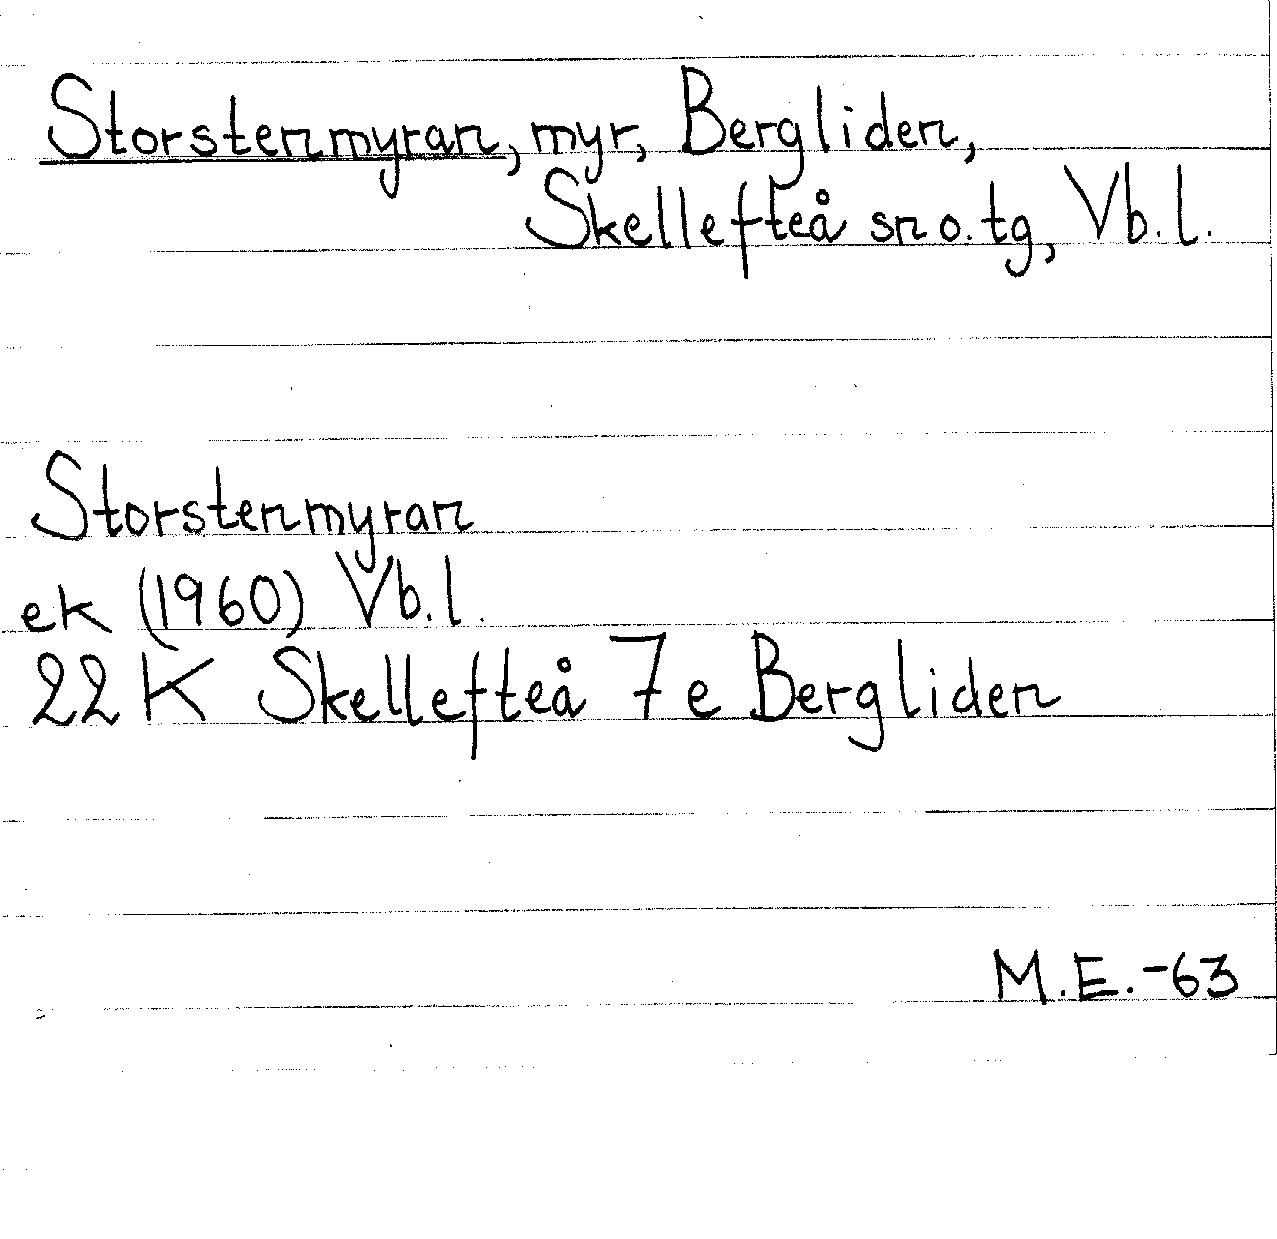 Storstenmyran, myr, Bergliden,
Skellefteå sn o. tg, Vb. l.
Storstenmyran
ek (1960) Vb. l.
22 K Skellefteå 7e Bergliden
M.E.-63